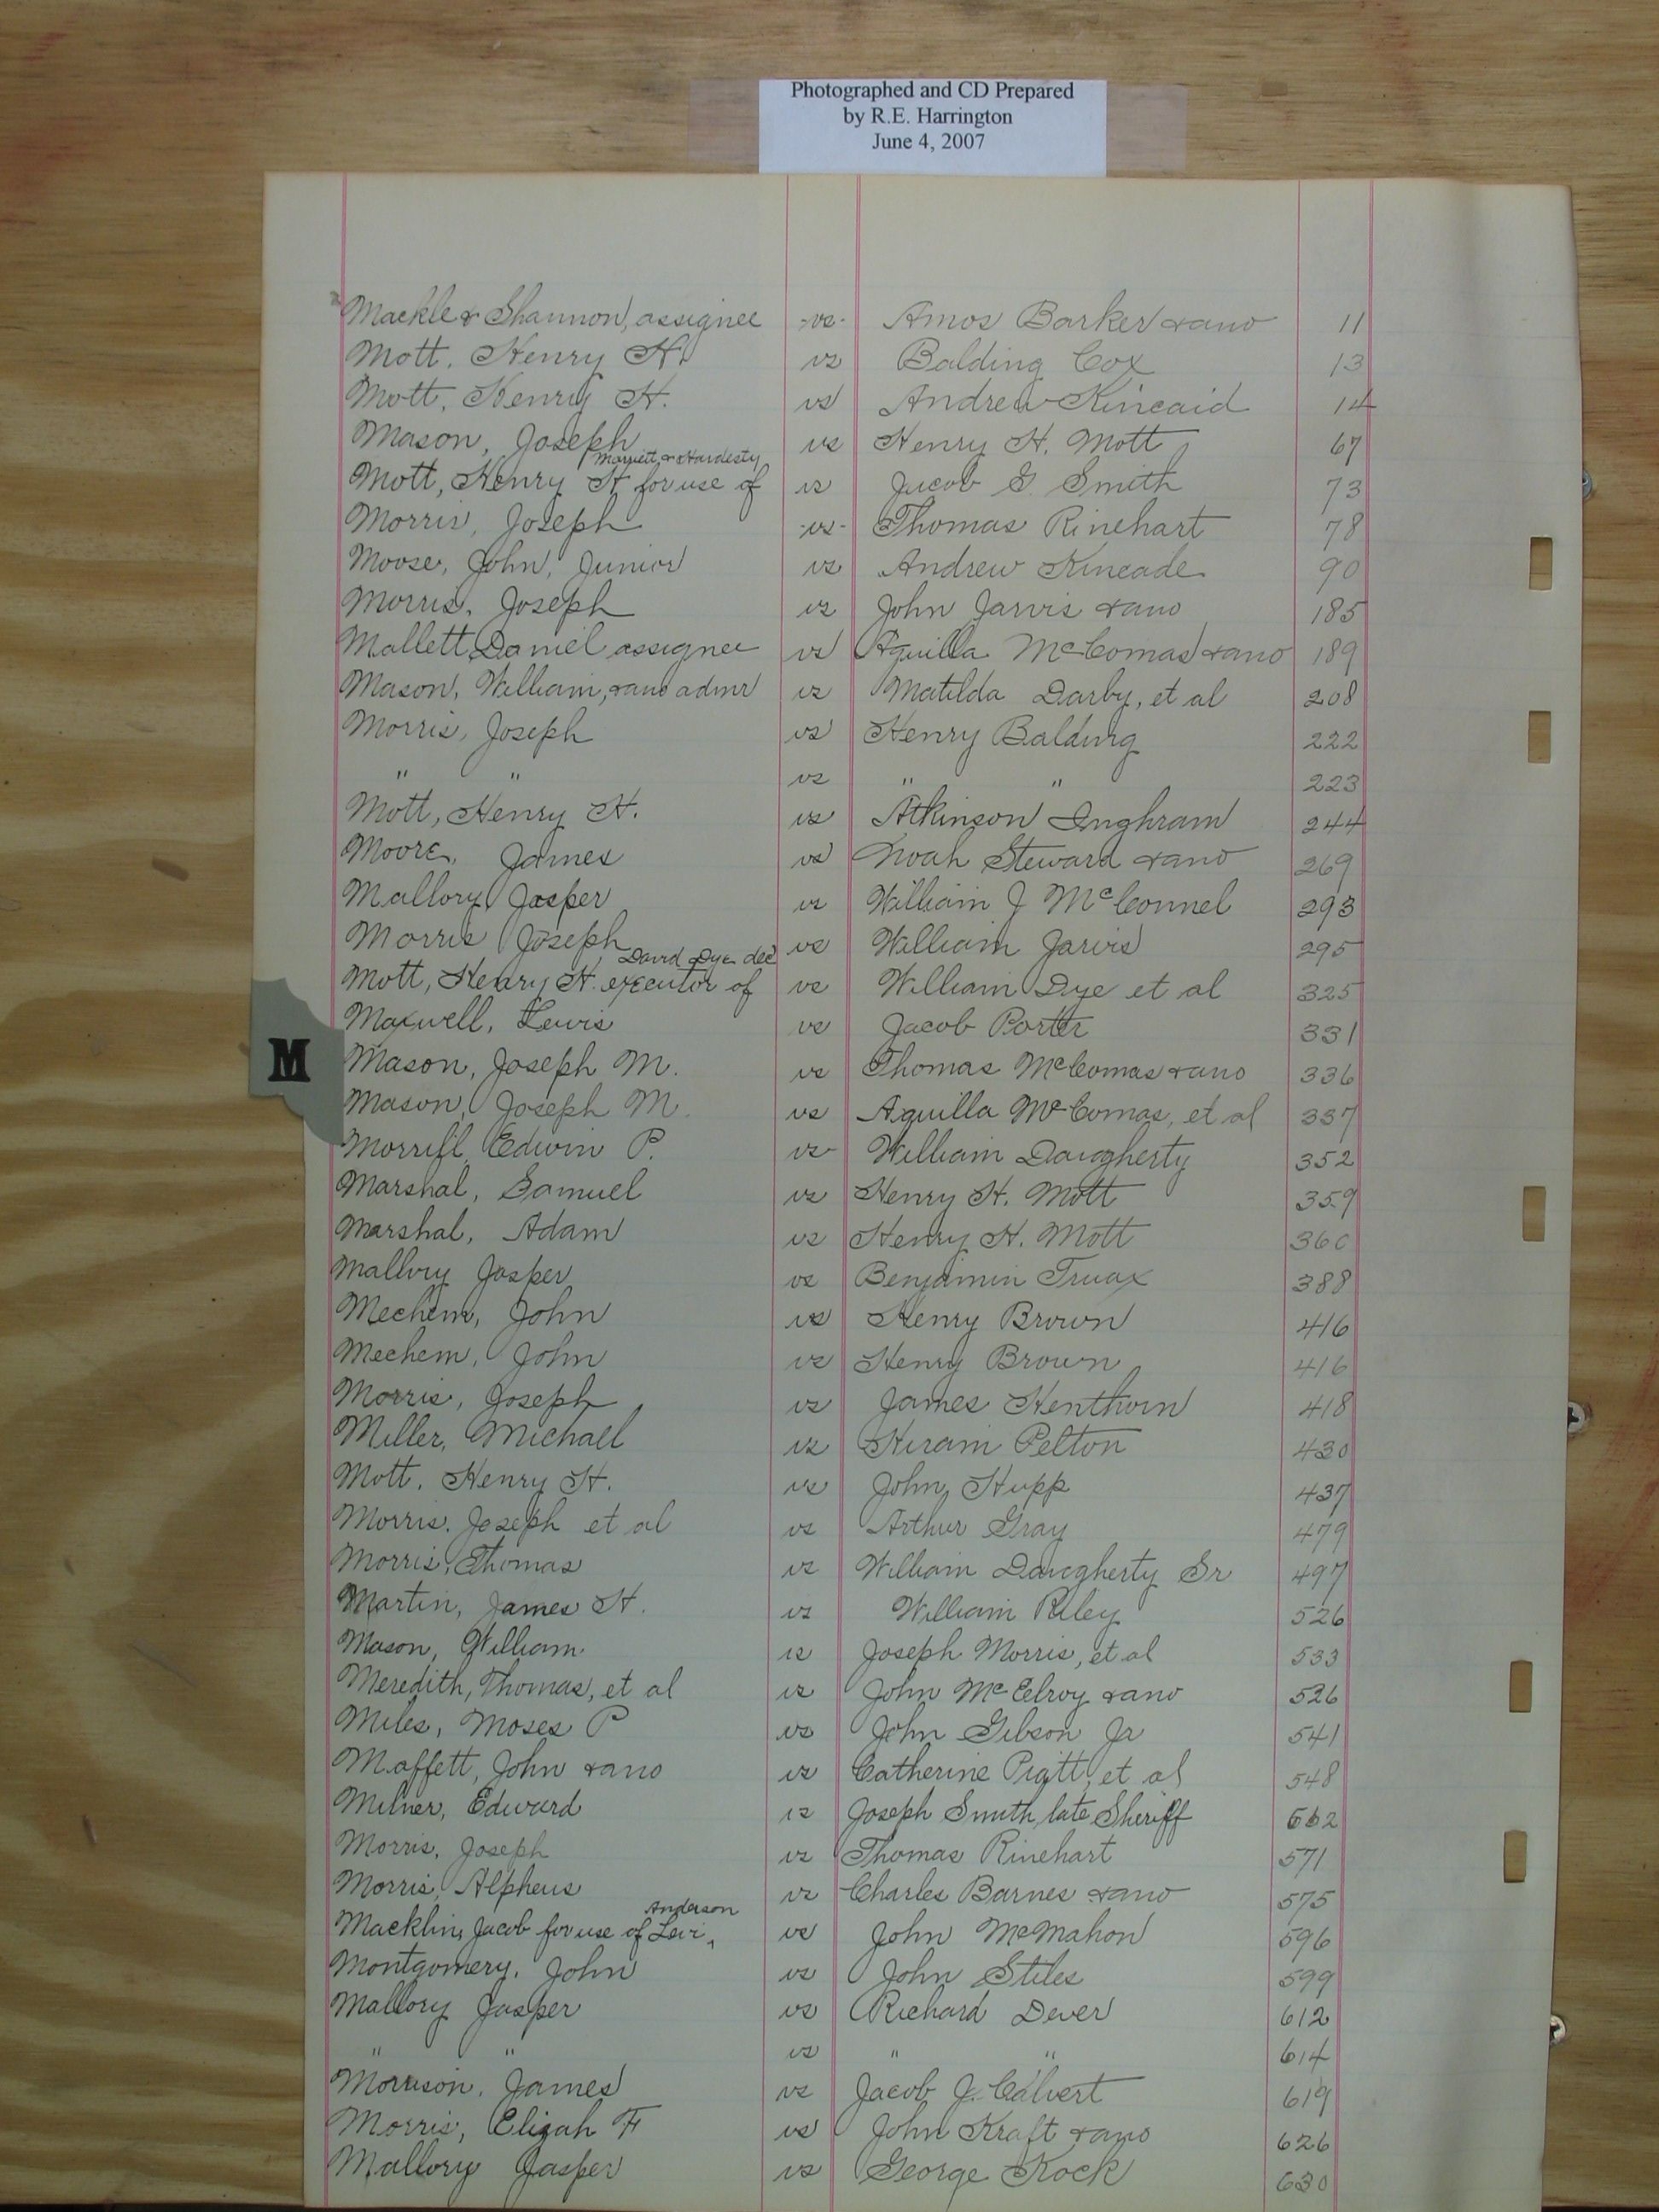 Photographed and CD Prepared
by R.E. Harrington
June 4, 2007
Mackle & Shannon, assignee -vs- Amos Barker & ano 11
Mott, Henry H. vs Balding Cox 13
Mott, Henry H. vs Andrew Kincaid 14
Mason, Joseph vs Henry H. Mott 67
Marriett & Hardesty
Mott, Henry H for use of vs Jacob G. Smith 73
Morris, Joseph -vs- Thomas Rinehart 78
Moose, John, Junior vs Andrew Kincade 90
Morris, Joseph vs John Jarvis & ano 185
Mallett, Daniel assignee vs Aquilla McComas & ano 189
Mason, William, & ano admr vs Matilda Darby, et al 208
Morris, Joseph vs Henry Balding 222
" " vs " " 223
Mott, Henry H. vs Atkinson Inghram 244
Moore, James vs Noah Steward & ano 269
Mallory, Jasper vs William J McConnel 293
Morris Joseph vs William Jarvis 295
David Dye dec
Mott, Henry H. executor of vs William Dye et al 325
Maxwell, Lewis vs Jacob Porter 331
M
Mason, Joseph M. vs Thomas McComas & ano 336
Mason, Joseph M. vs Aquilla McComas, et al 337
Morrill, Edwin P. vs William Daugherty 352
Marshal, Samuel vs Henry H. Mott 359
Marshal, Adam vs Henry H. Mott 360
Mallory Jasper vs Benjamin Truax 388
Mechem, John vs Henry Brown 416
Mechem, John vs Henry Brown 416
Morris, Joseph vs James Henthorn 418
Miller, Michael vs Hiram Pelton 430
Mott, Henry H. vs John Hupp 437
Morris, Joseph et al vs Arthur Gray 479
Morris, Thomas vs William Daugherty Sr 497
Martin, James H. vs William Riley 526
Mason, William vs Joseph Morris, et al 533
Meredith, Thomas, et al vs John McEelroy & ano 536
Miles, Moses P vs John Gibson Jr 541
Maffett, John & ano vs Catherine Piatt, et al 548
Milner, Edward vs Joseph Smith late Sheriff
Morris, Joseph vs Thomas Rinehart 571
Morris, Alpheus vs Charles Barnes & ano 575
Anderson
Macklin, Jacob for use of Levi vs John McMahon 596
Montgomery, John vs John Stiles 599
Mallory Jasper vs Richard Dever 612
" " vs " " 614
Morrison, James vs Jacob J. Calvert 619
Morris, Elijah F vs John Kraft & ano 626
Mallory Jasper vs George Kock 630